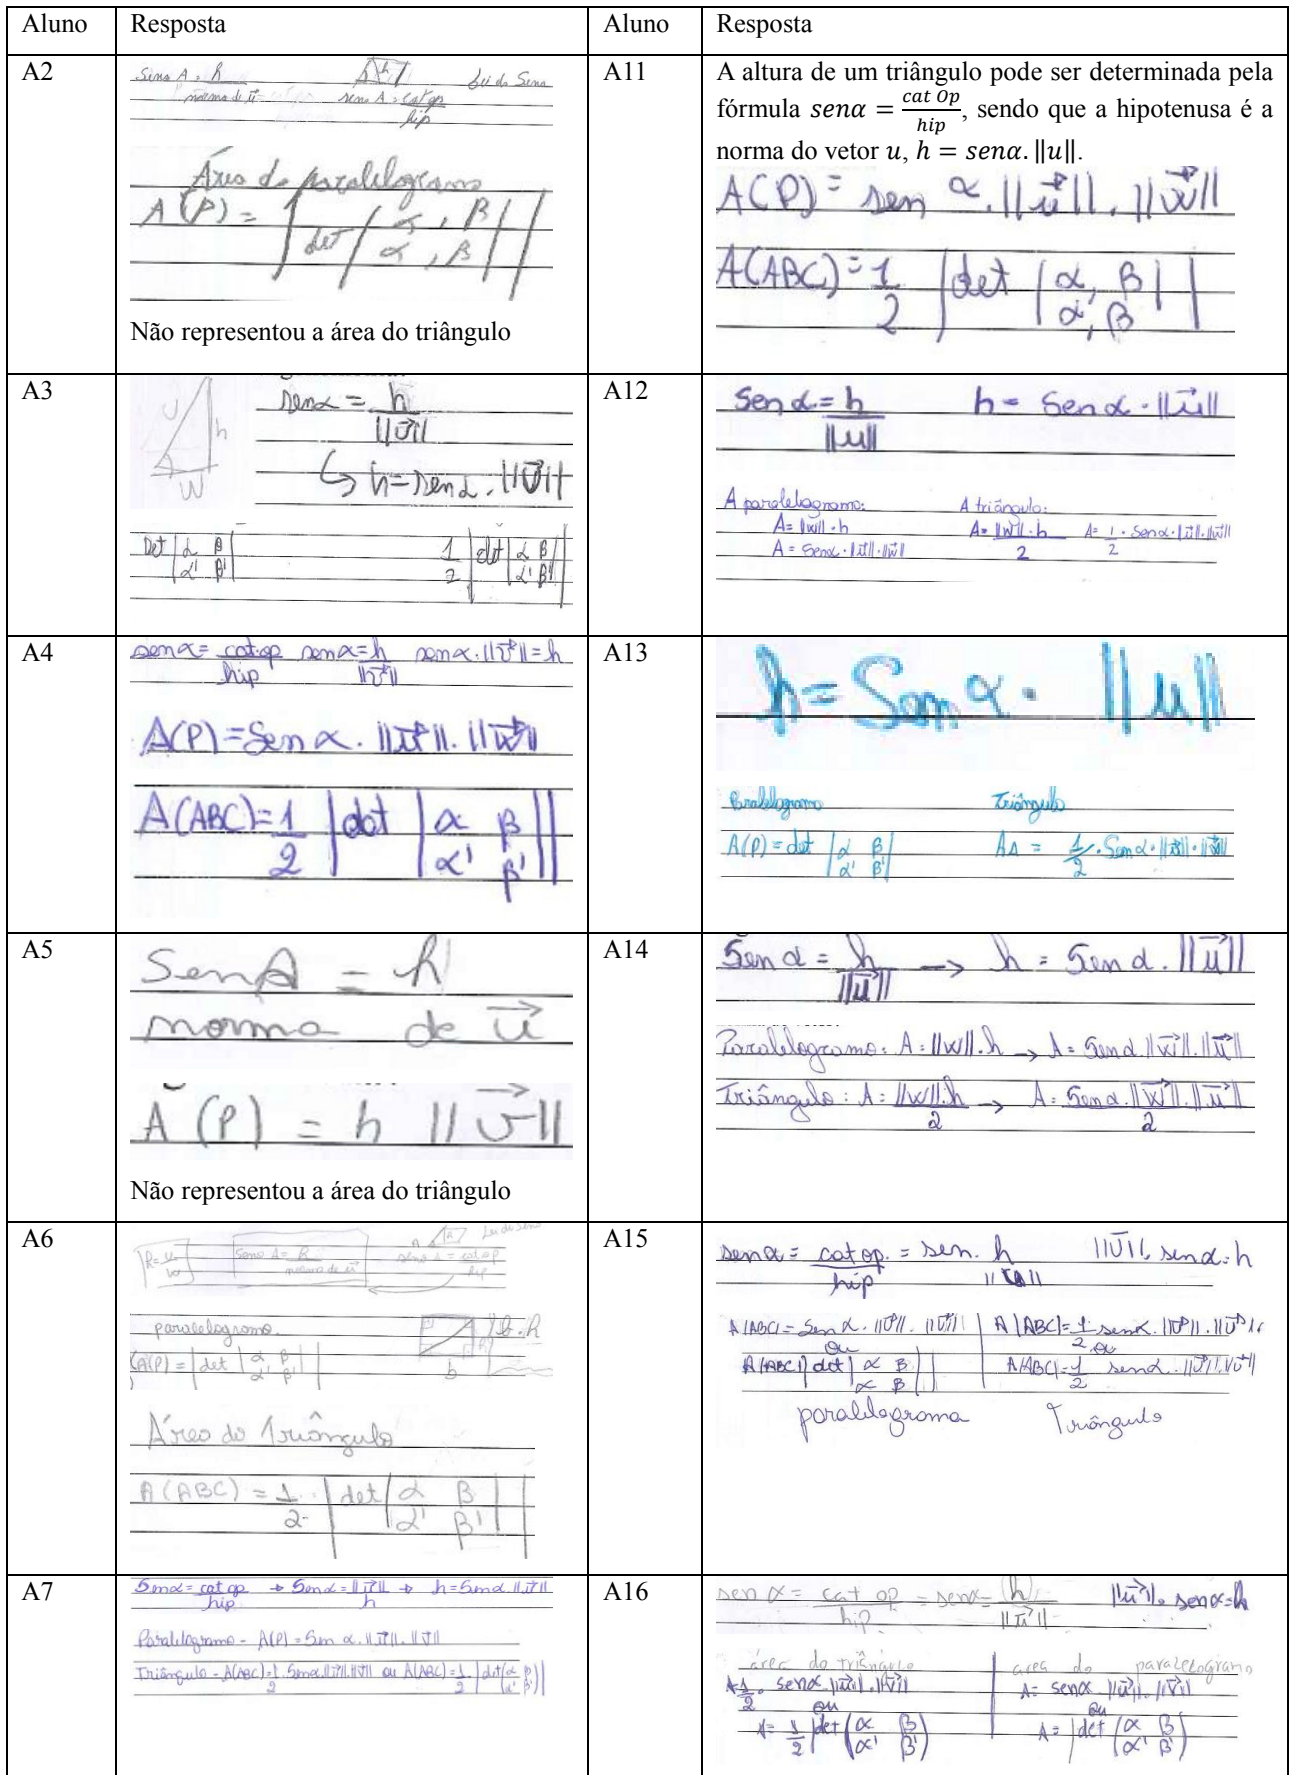 Aluno Resposta Aluno Resposta
A2
Seno A = h
norma de u
seno A = cat op
hip
Lei do Seno
Área do paralelogramo
A(P) = | det | α, β |
α, β | |
Não representou a área do triângulo
A11
A altura de um triângulo pode ser determinada pela
fórmula senα = cat Op / hip, sendo que a hipotenusa é a
norma do vetor u, h = senα. ‖u‖.
A(P) = sen α. ||u||. ||w||
A(ABC) = 1/2 |det | α, β |
α, β | |
A3
U h
W
senα = h / ||U||
↳ h = senα. ||U||
Det | α β |
| α' β' |
1/2 | det | α β |
α' β' | |
A12
Sen α = h / ||u|| h = Sen α · ||u||
A paralelogramo: A triângulo:
A = ||w|| · h A = ||w|| · h / 2 A = 1/2 · Senα · ||u|| · ||w||
A = Senα · ||u|| · ||w||
A4
senα = cat.op / hip senα = h / ||v|| senα. ||v|| = h
A(P) = Sen α. ||u||. ||w||
A(ABC) = 1/2 |det | α β |
α' β' | |
A13
h = Sen α · ||u||
Paralelogramo Triângulo
A(P) = det | α β | A△ = 1/2 · Sen α · ||u|| · ||w||
| α' β' |
A5
Sen A = h
norma de u
A(P) = h ||v||
Não representou a área do triângulo
A14
Sen α = h / ||u|| → h = Sen α. ||u||
Paralelogramo: A = ||w||. h → A = Sen α. ||w||. ||u||
Triângulo: A = ||w||. h / 2 → A = Sen α. ||w||. ||u|| / 2
A6
Seno A = h
norma de u
Lei do Seno
seno A = cat op
hip
paralelogramo
b.h
b
A(P) = | det | α β |
α' β' | |
Área do Triângulo
A(ABC) = 1/2 · | det | α β |
α' β' | |
A15
senα = cat op. / hip = sen. h / ||u|| ||U||. senα = h
A(ABC) = Sen α. ||U||. ||U|| A(ABC) = 1/2 senα. ||U||. ||U||
ou ou
A(ABC) | det | α β | A(ABC) = 1/2 senα. ||U||. ||U||
α β | |
paralelograma Triângulo
A7
Senα = cat op / hip → Senα = ||u|| / h → h = Senα. ||u||
Paralelogramo - A(P) = Sen α. ||u||. ||v||
Triângulo - A(ABC) = 1/2. Senα. ||u||. ||v|| ou A(ABC) = 1/2. | det(α β
α' β') |
A16
sen α = cat op / hip = senα = (h) / ||u|| ||u||. senα = h
área do triângulo área do paralelogramo
A = 1/2. senα. ||u||. ||v|| A = senα. ||u||. ||v||
ou ou
A = 1/2 |det (α β A = |det (α β
α' β') α' β')